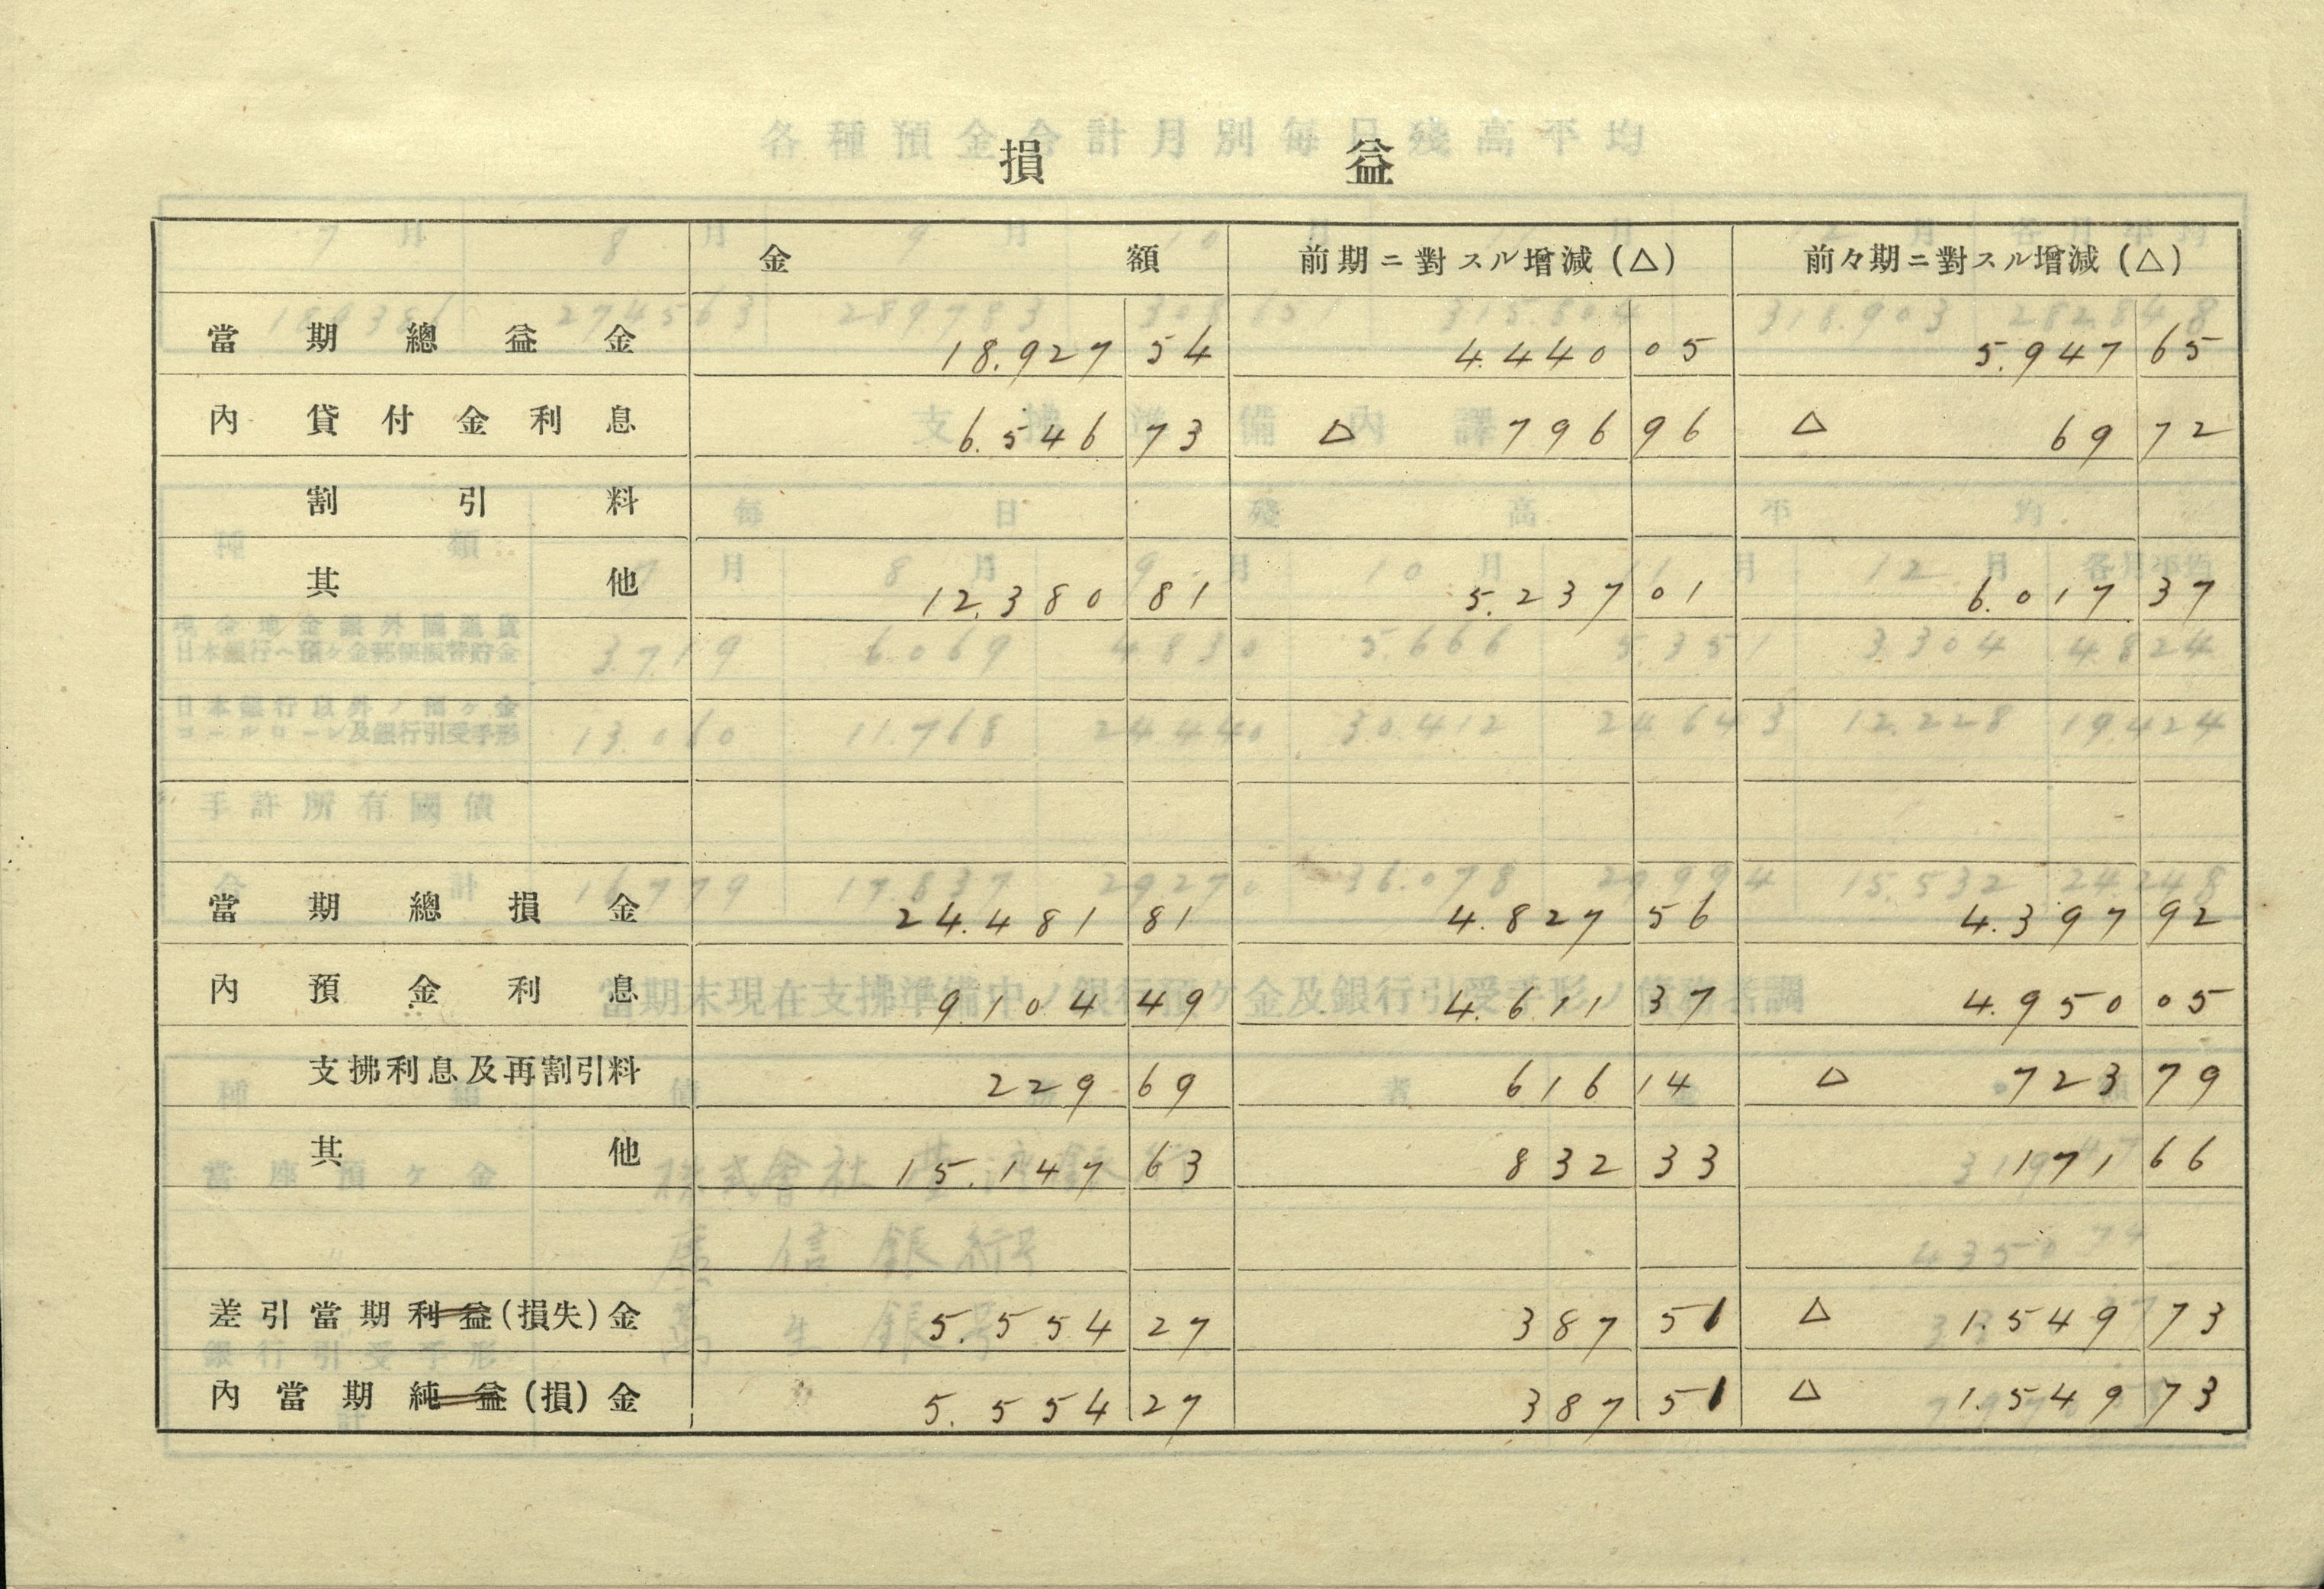 損益
金額 前期ニ對スル增減(△) 前々期ニ對スル增減(△)
當期總益金 18.927 54 4.440 05 5.947 65
內 貸付金利息 6.546 73 △ 796 96 △ 69 72
割引料
其他 12.380 81 5.237 01 6.017 37
當期總損金 24.481 81 4.827 56 4.397 92
內 預金利息 9.104 49 4.611 37 4.950 05
支拂利息及再割引料 229 69 616 14 △ 723 79
其他 15.147 63 832 33 171 66
差引當期利益(損失)金 5.554 27 387 51 △ 1.549 73
內當期純益(損)金 5.554 27 387 51 △ 1.549 73